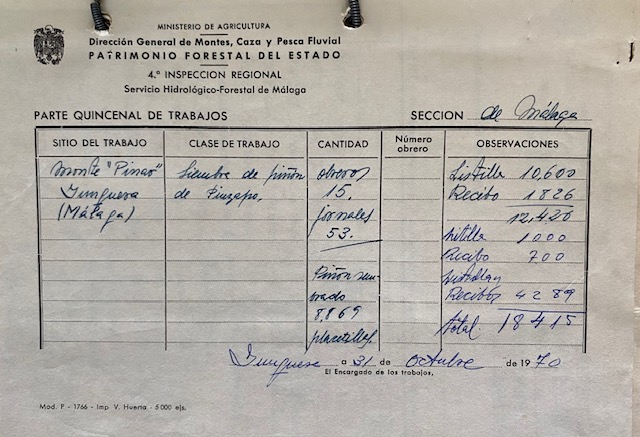 MINISTERIO DE AGRICULTURA
Dirección General de Montes, Caza y Pesca Fluvial
PATRIMONIO FORESTAL DEL ESTADO
4.ª INSPECCION REGIONAL
Servicio Hidrológico-Forestal de Málaga
PARTE QUINCENAL DE TRABAJOS
SECCION de Málaga
SITIO DEL TRABAJO
CLASE DE TRABAJO
CANTIDAD
Número obrero
OBSERVACIONES
Monte "Pinar"
Yunquera
(Málaga)
Siembra de piñón
de Pinzapo.
obreros
15.
jornales
53.
Piñón sem-
brado
8,869
placetillas
Listilla 10,600
Recibo 1826
12,426
listilla 1000
Recibo 700
Recibos 4289
total. 18415
Yunquera a 31 de octubre de 1970
El Encargado de los trabajos,
Mod. P - 1766 - Imp V. Huerta - 5000 ejs.